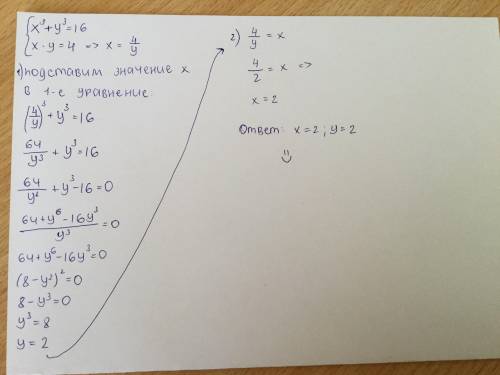 { x³ + y³ = 16
x · y = 4 => x = 4/y
1) подставим значение x
в 1-е уравнение:
(4/y)³ + y³ = 16
64/y³ + y³ = 16
64/y³ + y³ - 16 = 0
(64 + y⁶ - 16y³)/y³ = 0
64 + y⁶ - 16y³ = 0
(8 - y³)² = 0
8 - y³ = 0
y³ = 8
y = 2
2) 4/y = x
4/2 = x =>
x = 2
Ответ: x = 2; y = 2